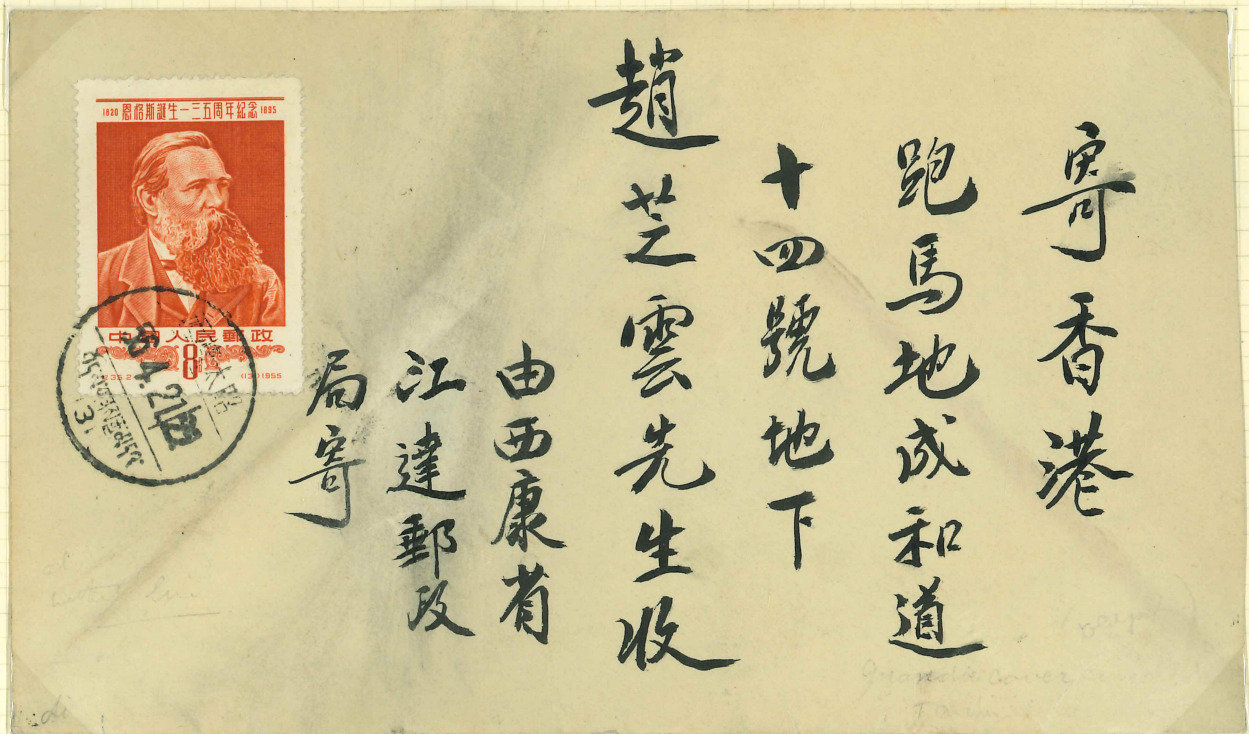 寄香港
跑馬地成和道
十四號地下
趙芝雲先生收
由西康省
江達郵政
局寄
1820 恩格斯誕生一三五周年紀念 1895
中国人民郵政
8
56.4.21